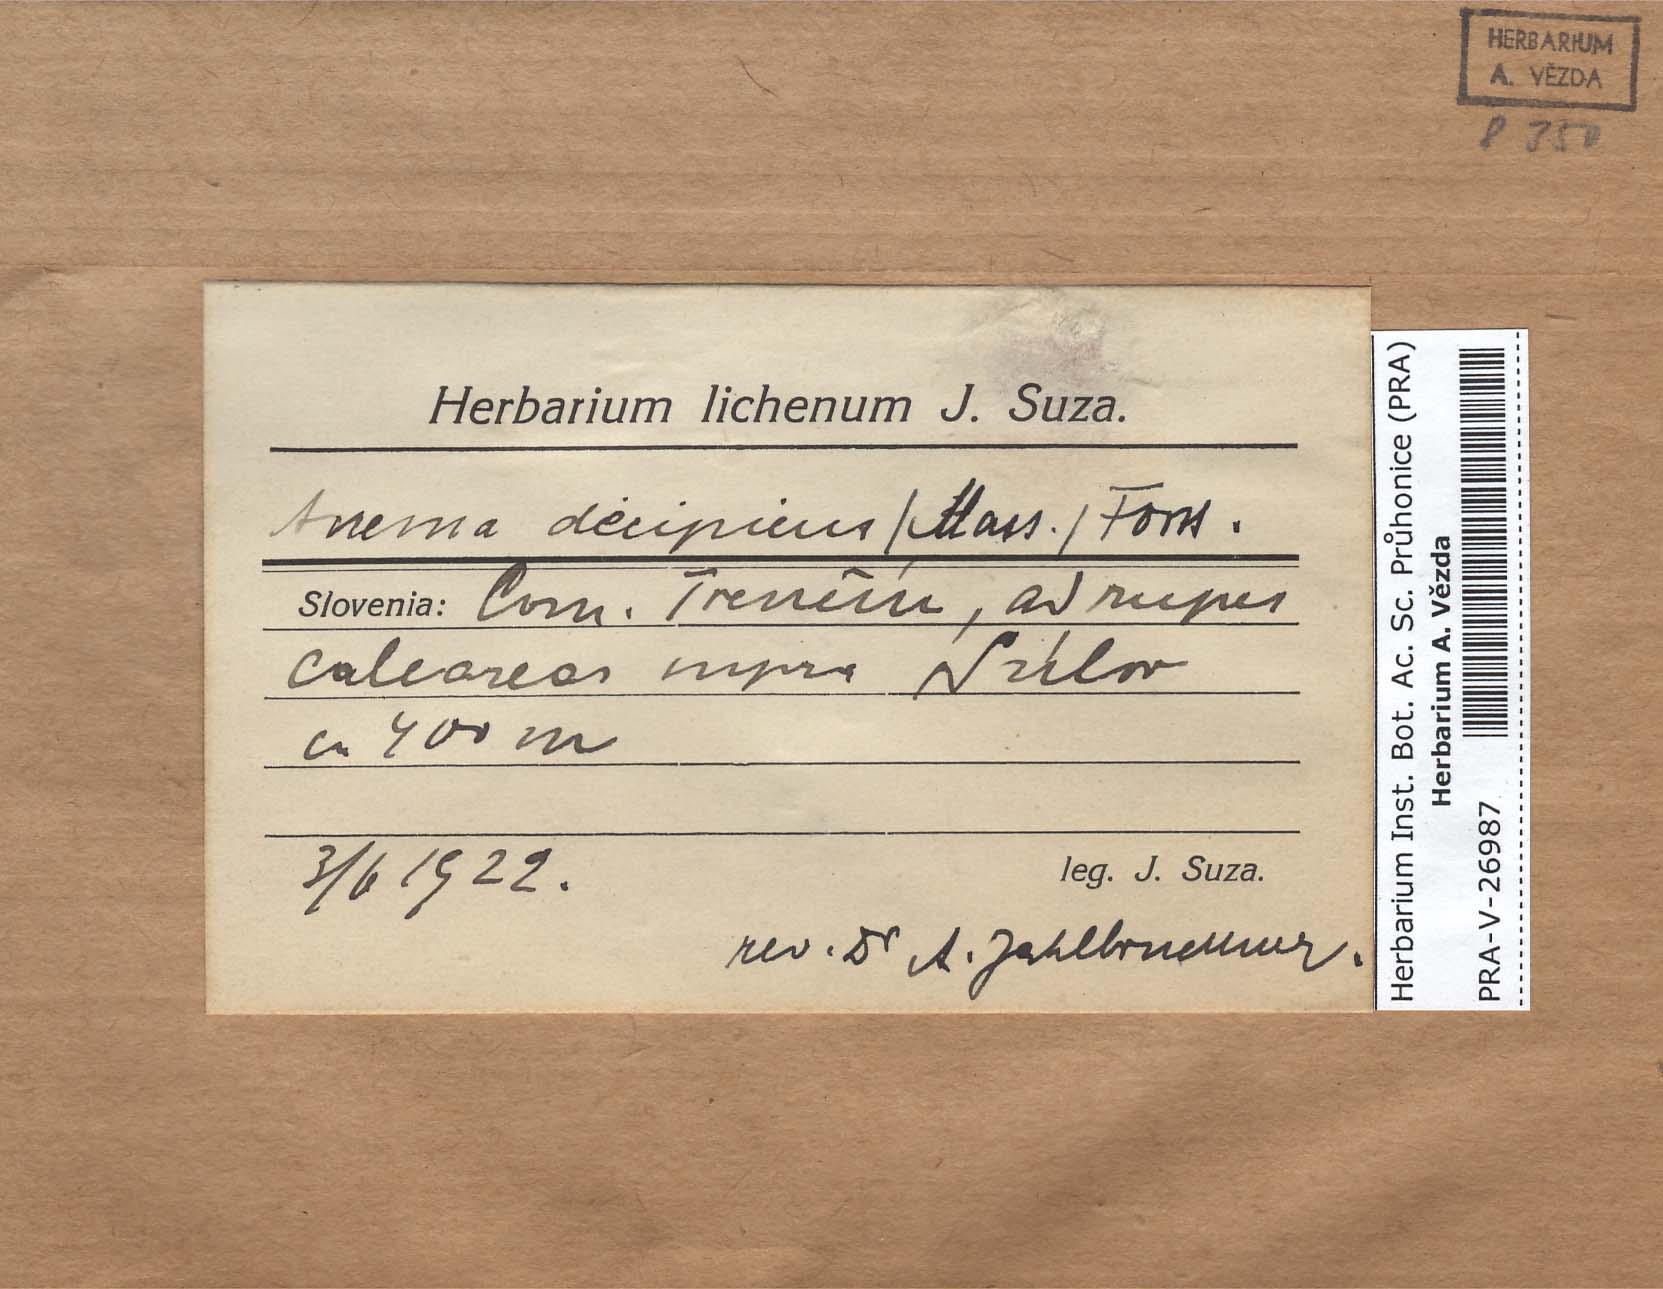 HERBARIUM
A. VĚZDA
8 350
Herbarium lichenum J. Suza.
Anema decipiens /Mass./ Forss.
Slovenia: Com. Trenčín, ad rupes
calcareas supra Súlov
ca 400 m
3/6 1922.
leg. J. Suza.
rev. Dr A. Zahlbruckner.
Herbarium Inst. Bot. Ac. Sc. Průhonice (PRA)
Herbarium A. Vězda
PRA-V-26987